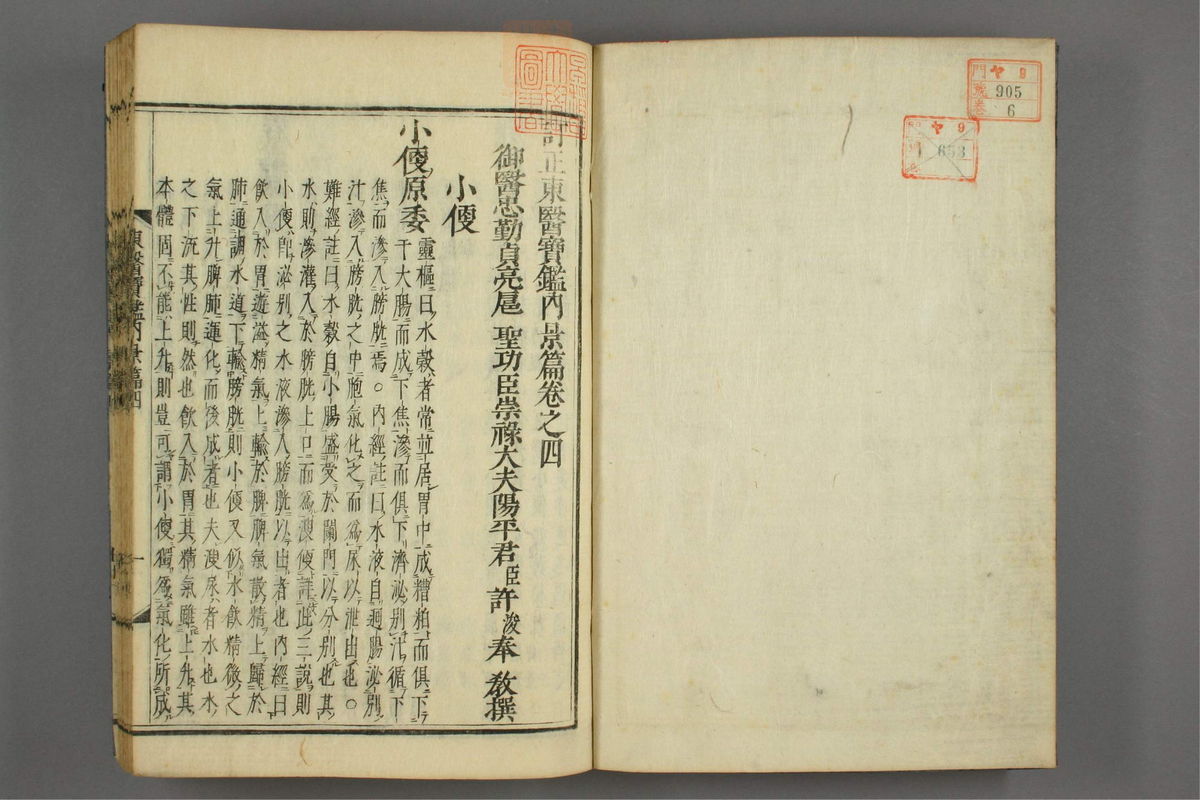 門 ヤ 9
號 905
卷 6
ヤ 9
653
訂正東醫寶鑑內景篇卷之四
御醫忠勤貞亮扈 聖功臣崇祿大夫陽平君臣許浚奉 敎撰
小便
小便原委 靈樞曰水穀者常並居胃中成糟粕而俱下
于大腸而成下焦滲而俱下濟泌別汁循下
焦而滲入膀胱焉○內經註曰水液自廻腸泌別
汁滲入膀胱之中胞氣化之而爲尿以泄出也○
難經註曰水穀自小腸盛受於闌門以分別也其
水則滲灌入於膀胱上口而爲溲便詳此三說則
小便卽泌別之水液滲入膀胱以出者也內經曰
飮入於胃遊溢精氣上輸於脾脾氣散精上歸於
肺通調水道下輸膀胱則小便又似水飮精微之
氣上升脾肺運化而後成者也夫溲尿者水也水
之下流其性則然也飮入於胃其精氣雖上升其
本體固不能上升則豈可謂小便獨爲氣化所成
東醫寶鑑內景篇四